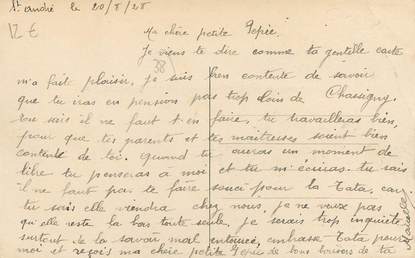 St André le 20/8/28
12 €
Ma chère petite Pépée.
Je viens te dire comme ta gentille carte
m'a fait plaisir, je suis bien contente de savoir
38
que tu iras en pension pas trop loin de Chassigny.
tu sais il ne faut t'en faire, tu travailleras bien,
pour que tes parents et tes maitresses soient bien
contents de toi. quand tu auras un moment de
libre tu penseras à moi et tu m'écriras. tu sais
il ne faut pas te faire souci pour la Tata, car
tu sais elle viendra chez nous, je ne veux pas
qu'elle reste la bas toute seule, je serais trop inquiète
surtout de la savoir mal entourée, embrasse Tata pour
moi et reçois ma chère petite Pépée de bons baisers de ta
Marcelle